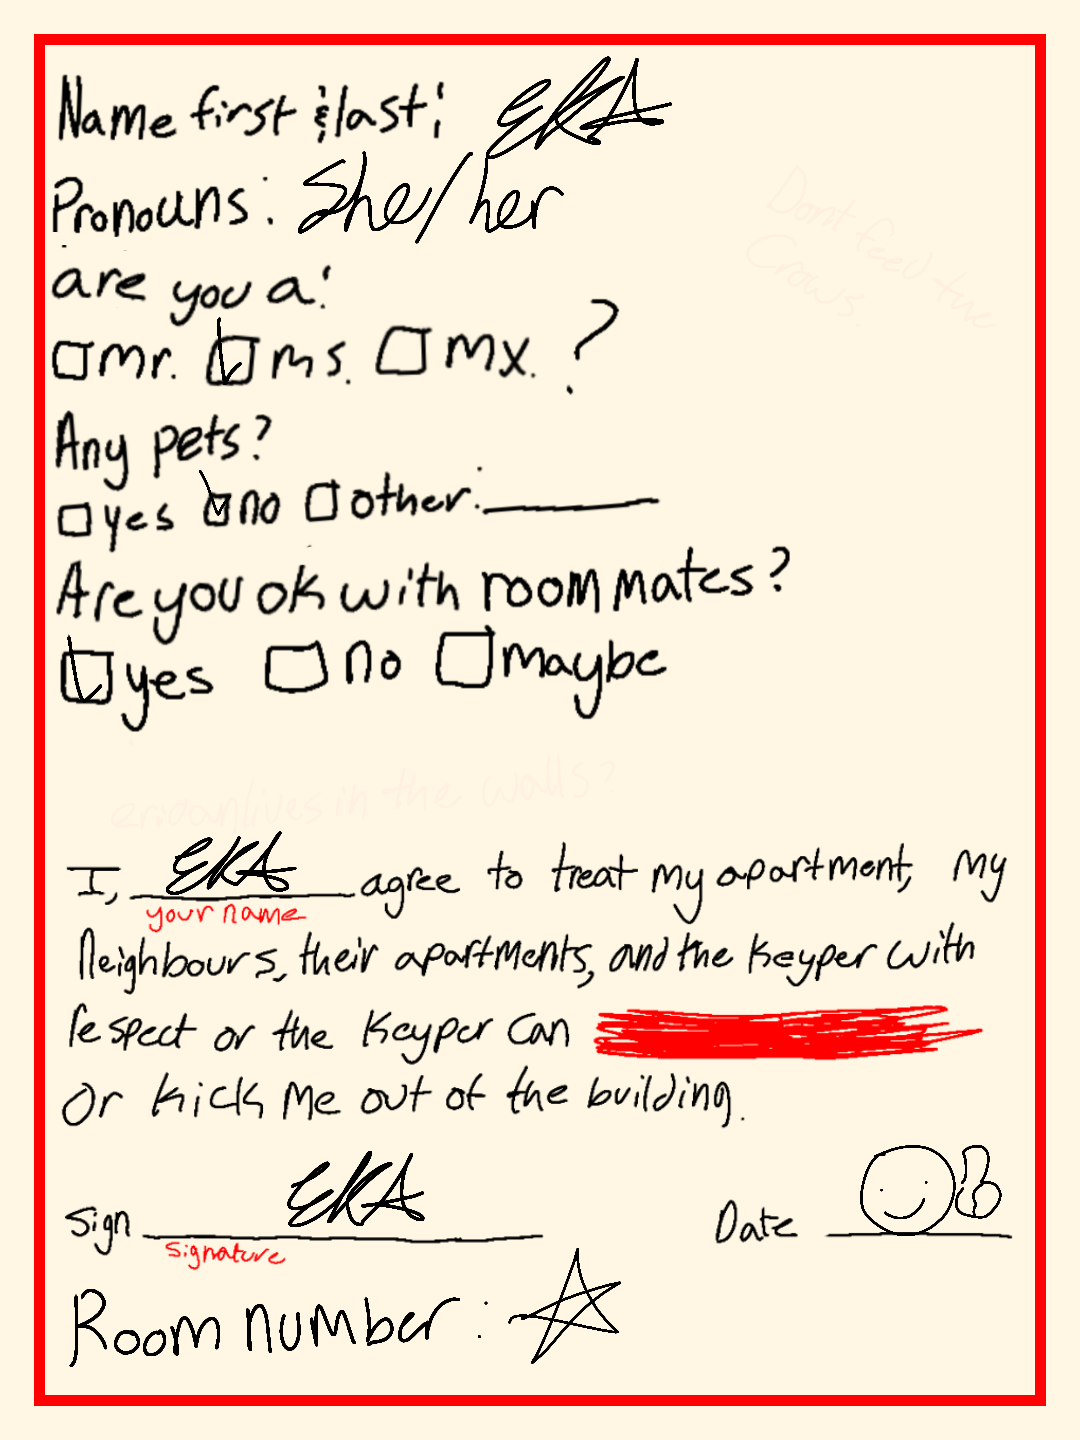 Name first & last: EKA
Pronouns: She/her
Dont feed the
Crows.
are you a:
mr. ms. mx. ?
Any pets?
yes no other: ______
Are you ok with roommates?
yes no maybe
lives in the walls?
I, EKA agree to treat my apartment, my
your name
Neighbours, their apartments, and the Keyper with
respect or the Keyper Can
Or kick Me out of the building.
Sign EKA Date
signature
Room number: